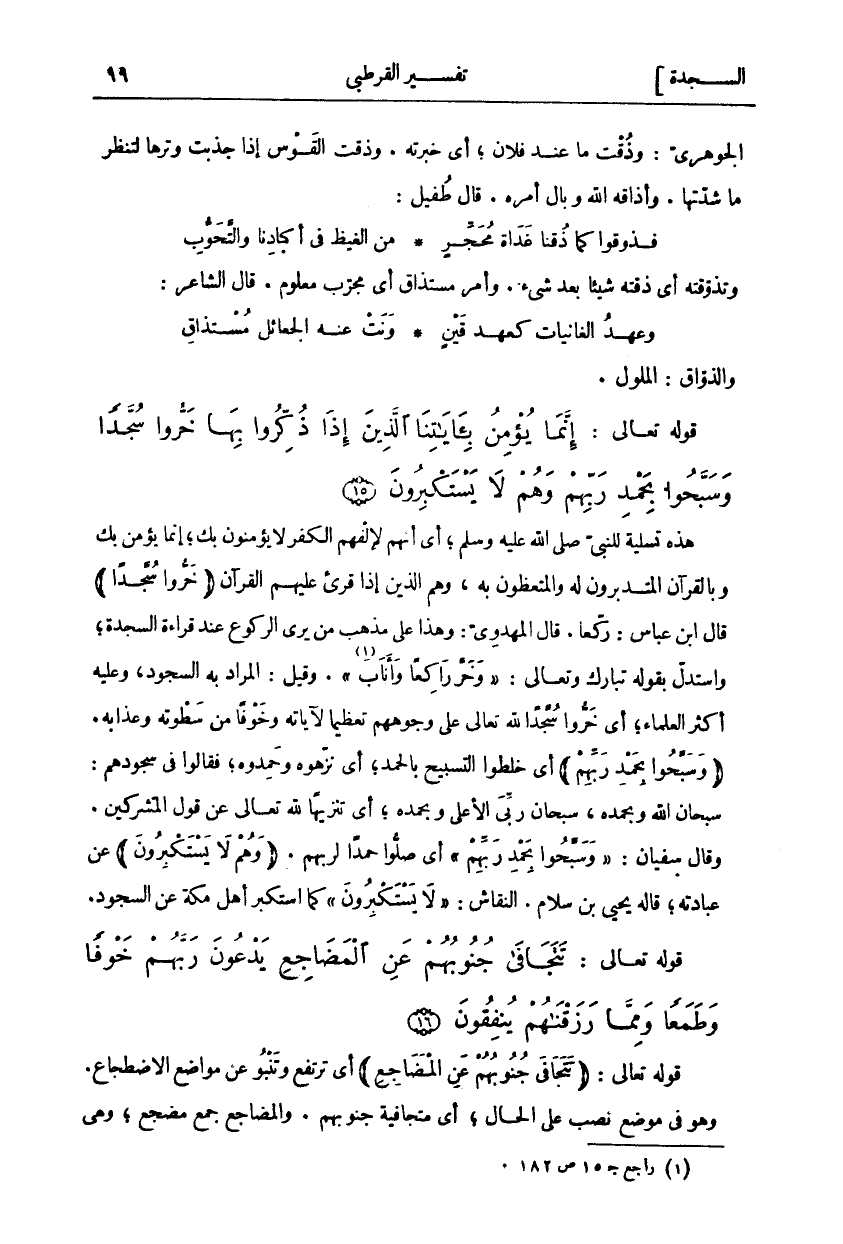 السجدة] تفسير القرطبى ٩٩
الجوهرىّ : وذُقْت ما عند فلان ؛ أى خبرته . وذقت القَوْس إذا جذبت وترها لتنظر
ما شدّتها . وأذاقه الله وبال أمره . قال طُفيل :
فذوقوا كما ذُقنا غَداة مُحَجِّرٍ * من الغيظ فى أكبادنا والتَّحَوُّبِ
وتذوّقته أى ذقته شيئا بعد شىء . وأمر مستذاق أى مجرّب معلوم . قال الشاعر :
وعهدُ الغانيات كعهد قَيْنٍ * وَنَتْ عنه الجعائل مُسْتذاقِ
والذوّاق : الملول .
قوله تعالى : إِنَّمَا يُؤْمِنُ بِـَٔايَـٰتِنَا ٱلَّذِينَ إِذَا ذُكِّرُوا بِهَا خَرُّوا سُجَّدًا
وَسَبَّحُوا بِحَمْدِ رَبِّهِمْ وَهُمْ لَا يَسْتَكْبِرُونَ ﴿١٥﴾
هذه تسلية للنبىّ صلى الله عليه وسلم ؛ أى أنهم لإلْفهم الكفر لا يؤمنون بك ؛ إنما يؤمن بك
وبالقرآن المتدبرون له والمتعظون به ، وهم الذين إذا قرئ عليهم القرآن ﴿ خَرُّوا سُجَّدًا ﴾
قال ابن عباس : ركّعا . قال المهدوىّ : وهذا على مذهب من يرى الركوع عند قراءة السجدة ؛
واستدلّ بقوله تبارك وتعالى : « وَخَرَّ رَاكِعًا وَأَنَابَ (١) » . وقيل : المراد به السجود ، وعليه
أكثر العلماء ؛ أى خَرُّوا سُجَّدًا لله تعالى على وجوههم تعظيما لآياته وخَوْفًا من سَطْوته وعذابه .
﴿ وَسَبَّحُوا بِحَمْدِ رَبِّهِمْ ﴾ أى خلطوا التسبيح بالحمد ؛ أى نزّهوه وحَمِدوه ؛ فقالوا فى سجودهم :
سبحان الله وبحمده ، سبحان ربِّىَ الأعلى وبحمده ؛ أى تنزيهًا لله تعالى عن قول المشركين .
وقال سفيان : « وَسَبَّحُوا بِحَمْدِ رَبِّهِمْ » أى صلُّوا حمدًا لربهم . ﴿ وَهُمْ لَا يَسْتَكْبِرُونَ ﴾ عن
عبادته ؛ قاله يحيى بن سلام . النقاش : « لَا يَسْتَكْبِرُونَ » كما استكبر أهل مكة عن السجود .
قوله تعالى : تَتَجَافَىٰ جُنُوبُهُمْ عَنِ ٱلْمَضَاجِعِ يَدْعُونَ رَبَّهُمْ خَوْفًا
وَطَمَعًا وَمِمَّا رَزَقْنَـٰهُمْ يُنفِقُونَ ﴿١٦﴾
قوله تعالى : ﴿ تَتَجَافَى جُنُوبُهُمْ عَنِ الْمَضَاجِعِ ﴾ أى ترتفع وتَنْبُو عن مواضع الاضطجاع .
وهو فى موضع نصب على الحال ؛ أى متجافية جنوبهم . والمضاجع جمع مضجع ؛ وهى
(١) راجع جـ ١٥ ص ١٨٢ .